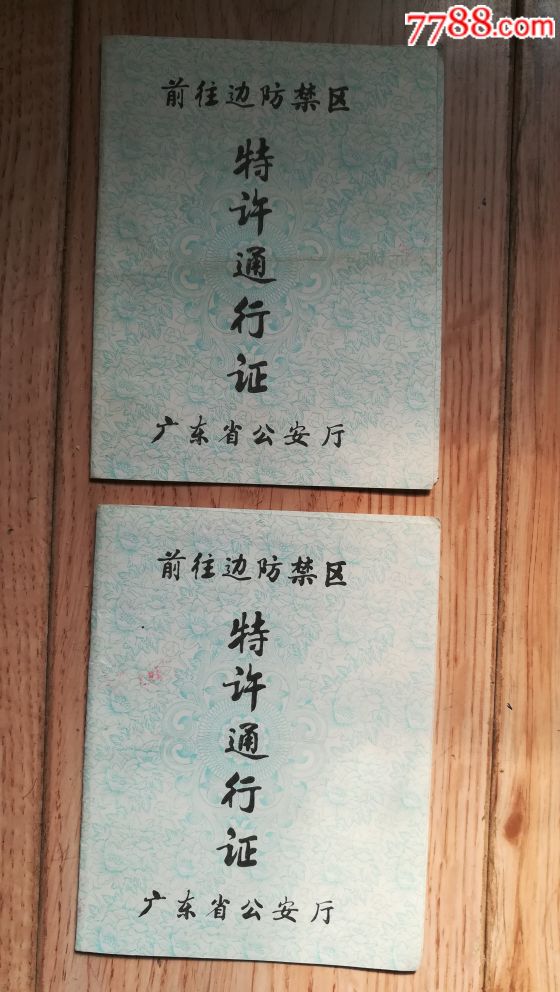 7788.com
前往边防禁区
特许通行证
广东省公安厅
前往边防禁区
特许通行证
广东省公安厅